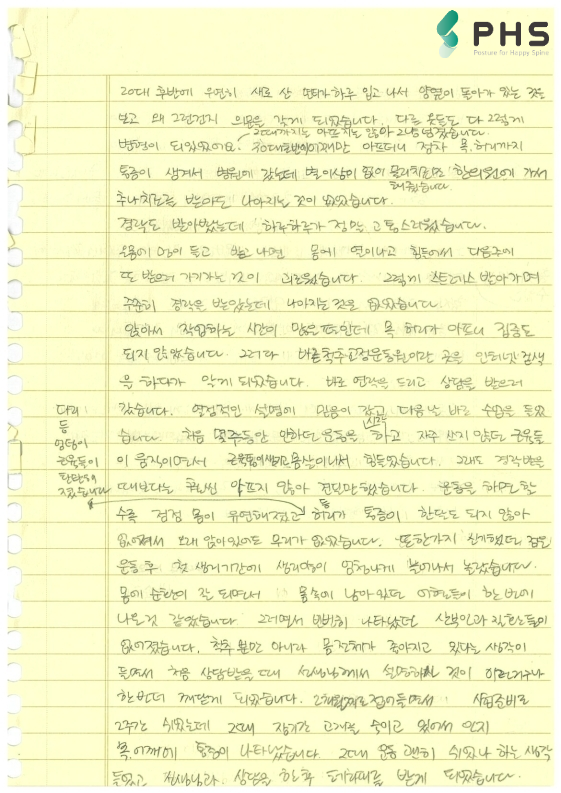 PHS
Posture for Happy Spine
20대 후반에 우연히 새로 산 바지가 하루 입고 나서 양옆이 돌아가 있는 것을
보고 왜 그런건지 의문을 갖게 되었습니다. 다른 옷들도 다 그렇게
20대까지는 아프지는 않아 그냥 넘겼습니다.
변형이 되있었어요. 30대 아프더니 점차 목, 허리까지
통증이 생겨서 병원에 갔는데 별이상이 없어 물리치료 한의원에 가서
해줬습니다.
추나치료를 받아도 나아지는 것이 없었습니다.
경락도 받아봤는데 하루하루가 정말 고통스러웠습니다.
온몸에 멍이 들고 받고 나면 몸에 열이나고 힘들어서 다음주에
또 받으러 가기가는 것이 괴로웠습니다. 그렇게 스트레스 받아가며
꾸준히 경락을 받았는데 나아지는 것은 없었습니다.
앉아서 작업하는 시간이 많은 편인데 목 허리가 아프니 집중도
되지 않았습니다. 그러다 바른척추교정운동원이란 곳을 인터넷 검색
을 하다가 알게 되었습니다. 바로 연락을 드리고 상담을 받으러
갔습니다. 열정적인 설명에 믿음이 갔고 다음날 바로 수업을 들었
습니다. 처음 몇주동안 안하던 운동을 시작하고 자주 쓰지 않던 근육들
이 움직이면서 근육통이 생기고 몸살이 나서 힘들었습니다. 그래도 경락받을
때보다는 훨씬 아프지 않아 견딜만 했습니다. 운동을 하면 할
다리 등 엉덩이 근육들이 탄탄해졌습니다
수록 점점 몸이 유연해졌고 허리 등 통증이 한달도 되지 않아
없어져서 오래 앉아있어도 무리가 없었습니다. 또한가지 신기했던 점은
운동 후 첫 생리기간에 생리양이 엄청나게 늘어나서 놀랐습니다.
몸에 순환이 잘 되면서 몸속에 남아있던 어혈들이 한번에
나온것 같았습니다. 그러면서 빈번히 나타났던
없어졌습니다. 척추뿐만 아니라 몸전체가 좋아지고 있다는 생각이
들면서 처음 상담받을때 선생님께서 설명하신 것이 이런거구나
한번더 깨닫게 되었습니다. 2개월째로 접어들면서 사업준비로
2주간 쉬었는데 그때 장기간 고개를 숙이고 있어서 인지
목, 어깨에 통증이 나타났습니다. 그때 운동 괜히 쉬었나 하는 생각
들었고 선생님과 상담을 한 후 테라피를 받게 되었습니다.